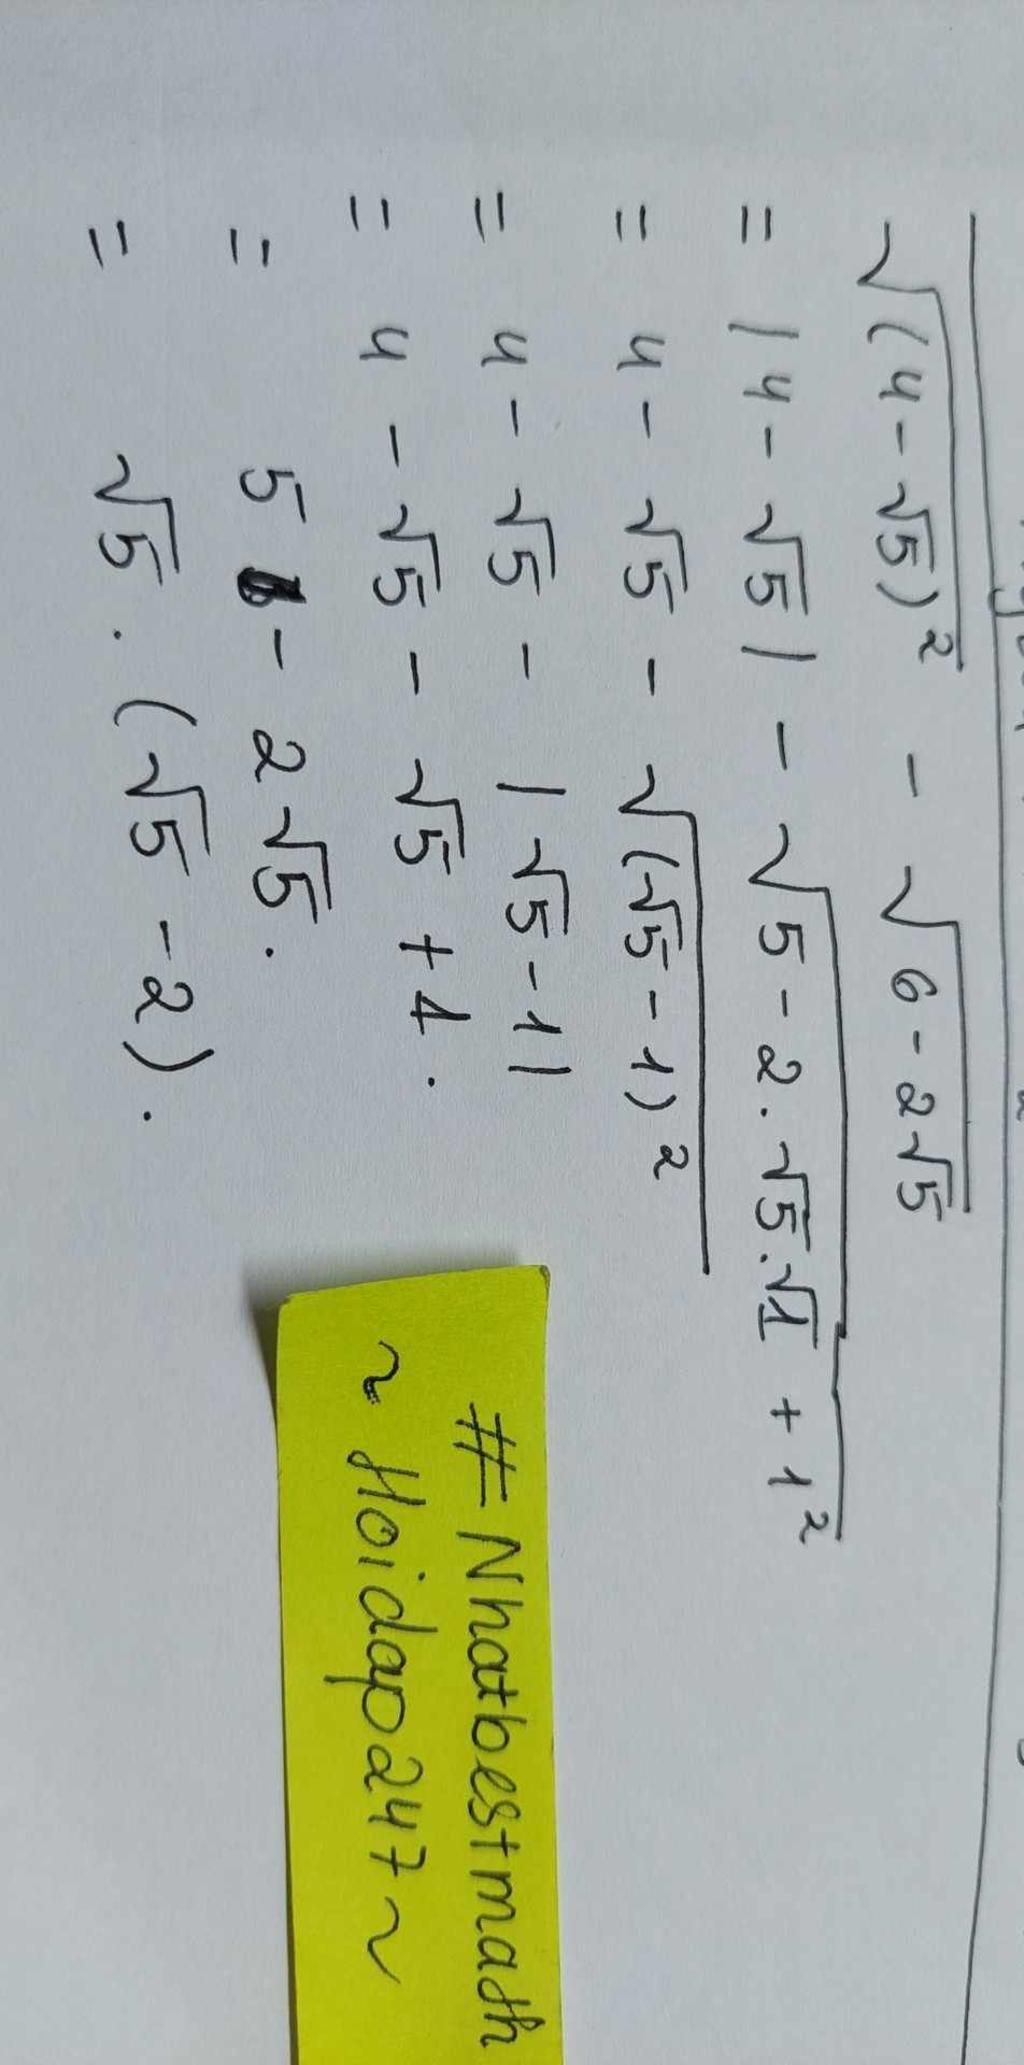 √(4 - √5)² - √6 - 2√5
= |4 - √5| - √5 - 2.√5.√1 + 1²
= 4 - √5 - √(√5 - 1)²
= 4 - √5 - |√5 - 1|
= 4 - √5 - √5 + 1.
= 5 - 2√5.
= √5.(√5 - 2).
#Nhatbestmath
~ Hoidap247 ~